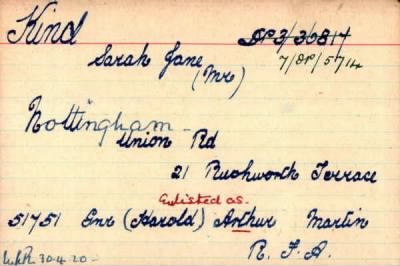 Kind
SP3/36814
Sarah Jane
7/DP/5714
(Mrs)
Nottingham
Union Rd
21 Rushworth Terrace
Enlisted as
51751 Gnr (Harold) Arthur Martin
R.F.A.
30.4.20.